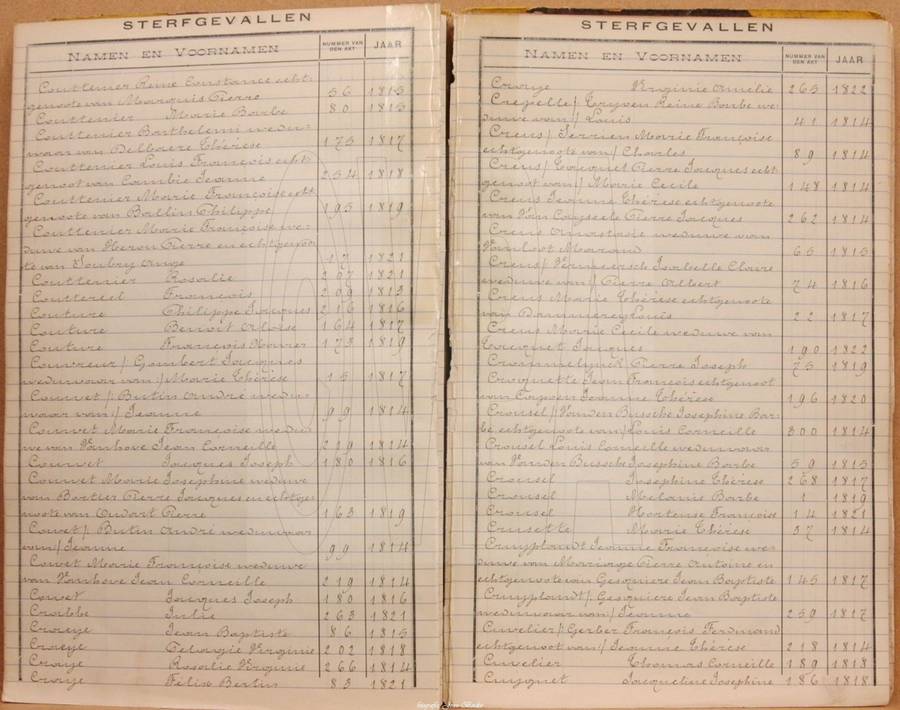 STERFGEVALLEN
NAMEN EN VOORNAMEN NUMMER VAN DEN AKT JAAR
Couttenier Reine Constance echt-
genoote van Marquis Pierre 56 1813
Couttenier Marie Barbe 80 1813
Couttenier Barthelemi wedu-
waar van Delbaere Thérèse 175 1817
Couttenier Louis François echt-
genoot van Cambie Jeanne 254 1818
Couttenier Marie Françoise echt
genoote van Ballin Philippe 195 1819
Couttenier Marie Françoise we-
duwe van Heron Pierre en echtgenoo
te van Soubry Ange 17 1821
Couttenier Rosalie 207 1821
Coutteeil François 209 1813
Couture Philippe Jacques 216 1816
Couture Benoit Aloise 164 1817
Couture François Xavier 173 1819
Couvreur / Gombert Jacques
weduwaar van / Marie Thérèse 15 1817
Couvet / Butin André wedu-
waar van / Jeanne 99 1814
Couvet Marie Françoise wedu-
we van Vanhove Jean Corneille 219 1814
Couvet Jacques Joseph 180 1816
Couvet Marie Josephine weduwe
van Bartier Pierre Jacques en echtge-
noote van Oudart Pierre 163 1819
Covet / Butin André weduwaar
van / Jeanne 99 1814
Covet Marie Françoise weduwe
van Vanhove Jean Corneille 219 1814
Covet Jacques Joseph 180 1816
Crabbe Julie 263 1821
Craeye Jean Baptiste 86 1815
Craeye Pelagie Virginie 202 1818
Craye Rosalie Virginie 266 1814
Craye Félix Bertin 83 1821
STERFGEVALLEN
NAMEN EN VOORNAMEN NUMMER VAN DEN AKT JAAR
Craeye Virginie Amelie 265 1822
Crepelle / Reine Barbe we-
duwe van / Louis 41 1814
Creus / Serrien Marie Françoise
echtgenoote van / Charles 89 1814
Creus / Cocquet Pierre Jacques echt
genoot van / Marie Cecile 148 1814
Creus Jeanne Thérèse echtgenoote
van Van Cayseele Pierre Jacques 262 1814
Creus Anastasie weduwe van
Vanloot 65 1815
Creus / Vermeersch Isabelle Claire
weduwe van / Pierre Albert 74 1816
Creus Marie Thérèse echtgenoote
van Dammerey Louis 22 1817
Creus Marie Cecile weduwe van
Cocquet Jacques 190 1822
Crommelynck Pierre Joseph 75 1819
Croquette Jean François echtgenoot
van Jeanne Thérèse 196 1820
Crousel / Vanden Bussche Josephine Bar-
be echtgenoote van / Louis Corneille 300 1814
Crousel Louis Corneille weduwaar
van Vanden Bussche Josephine Barbe 59 1815
Crousel Josephine Thérèse 268 1817
Crousel Melanie Barbe 1 1819
Crousel Hortense Françoise 14 1821
Crusette Marie Thérèse 37 1814
Cruyplandt Jeanne Françoise we-
duwe van Mariage Pierre Antoine en
echtgenoote van Gesquiere Jean Baptiste 145 1817
Cruyplandt / Gesquiere Jean Baptiste
weduwaar van / Jeanne 259 1817
Cuvelier / Gerber François Ferdinand
echtgenoot van / Jeanne Thérèse 218 1814
Cuvelier Thomas Corneille 189 1818
Jacqueline Josephine 186 1818